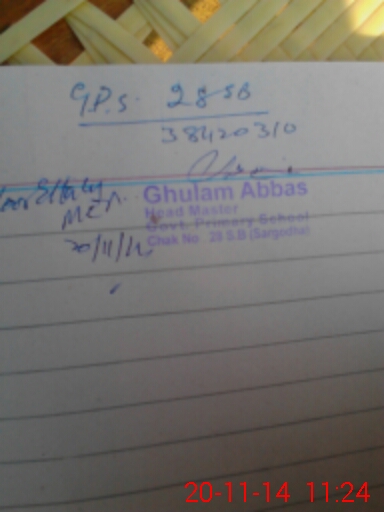 G.P.S. 28 SB
38420310
Ghulam Abbas
Head Master
Govt. Primary School
Chak No. 28 S.B (Sargodha)
MEA.
20/11/14
20-11-14 11:24